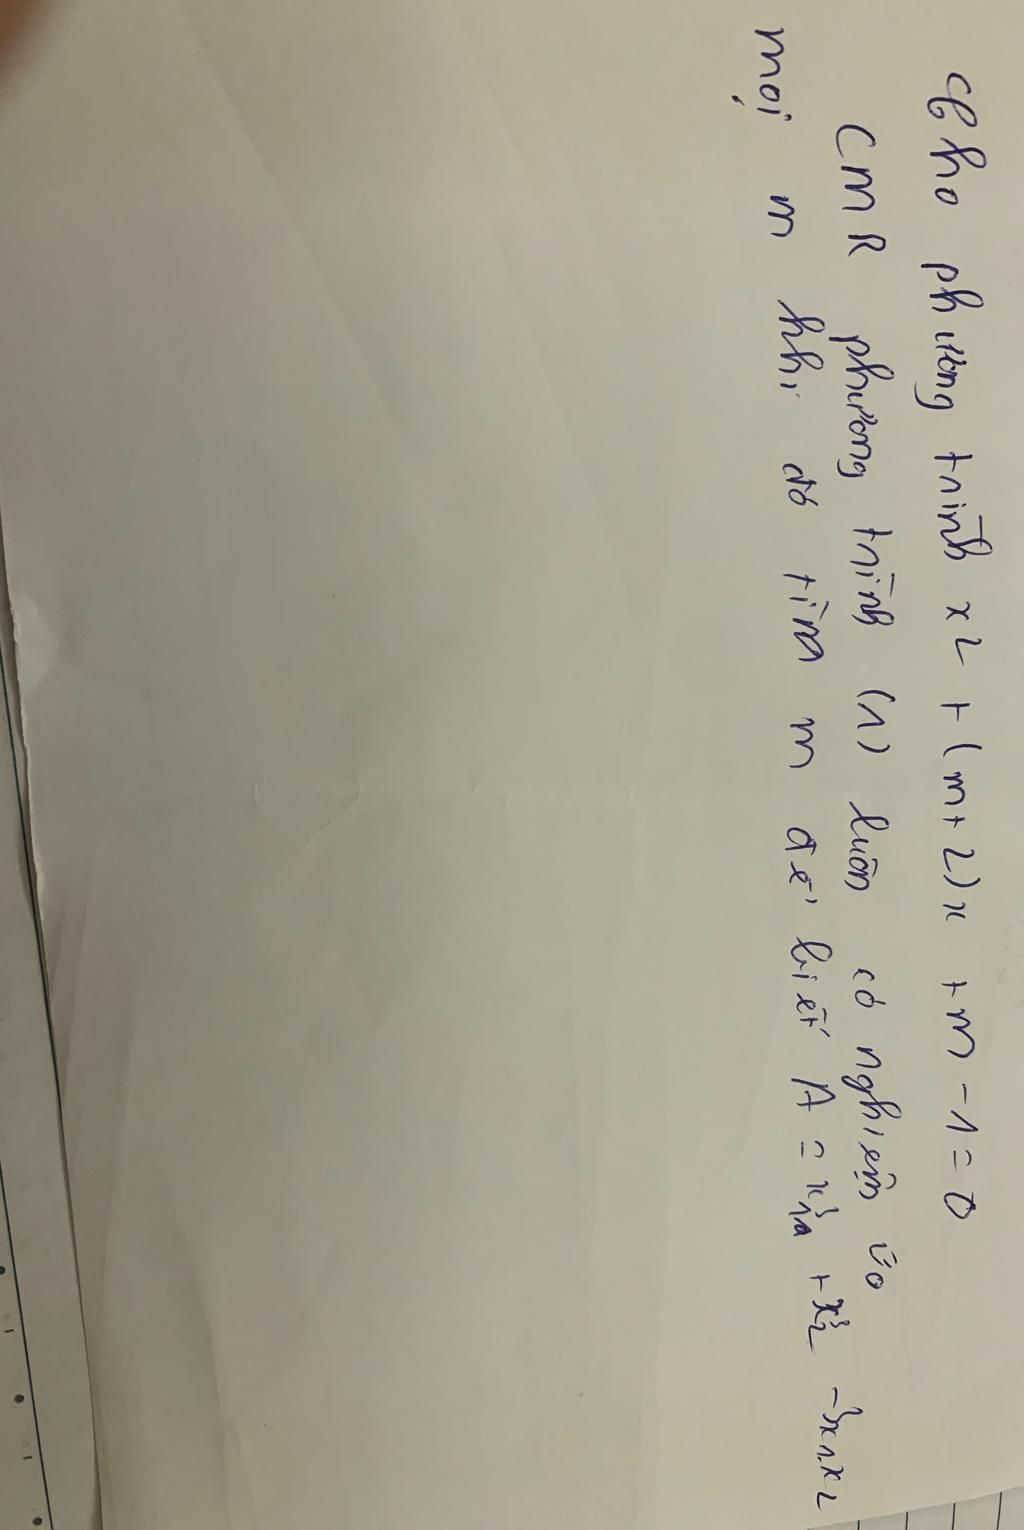 Cho phương trình x² + (m+2)x + m - 1 = 0
CMR phương trình (1) luôn có nghiệm với
mọi m khi đó tìm m để biết A = x₁³ + x₂³ - 3x₁.x₂